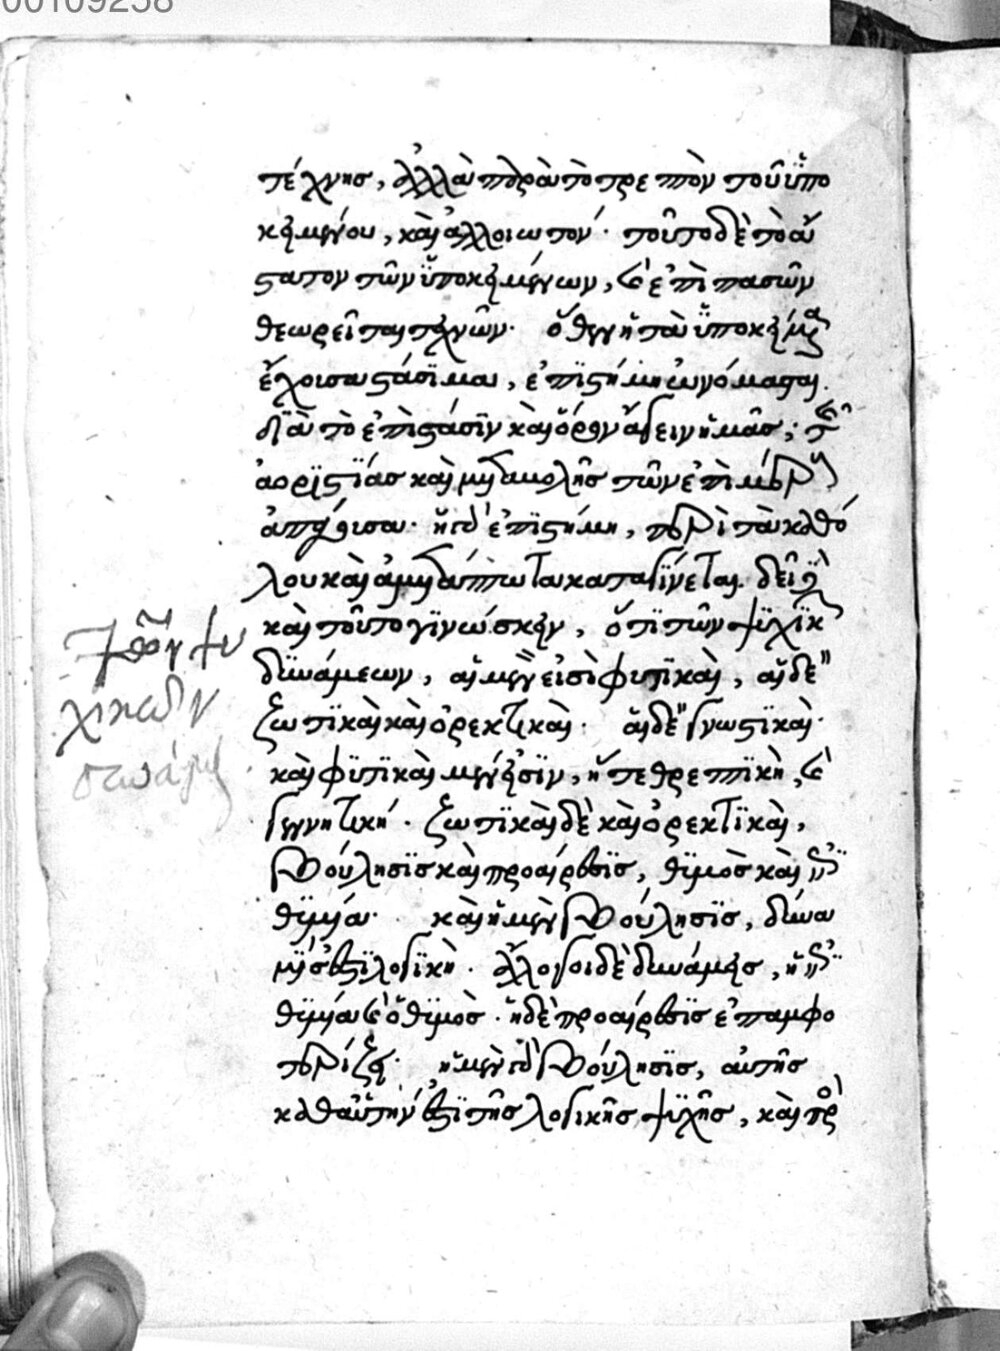 00109258
τέχνης, ἀλλὰ παρὰ τὸ τρεπτὸν τοῦ ὑπο
κειμένου, καὶ ἀλλοιωτόν· τοῦτο δὲ τὸ ἄ
στατον τῶν ὑποκειμένων, καὶ ἐπὶ πασῶν
θεωρεῖται τεχνῶν· ὅθεν ἡ τὰ ὑποκείμενα
ἔχουσα στάσιμα, ἐπιστήμη ὠνόμασται.
διὰ τὸ ἐπὶ στάσιν καὶ ὅρον ἄγειν ἡμᾶς, τῆς
ἀοριστίας καὶ μεταβολῆς τῶν ἐπὶ μέρους
ἀπάγουσα· ἡ γὰρ ἐπιστήμη, περὶ τὰ καθό
λου καὶ ἀμετάπτωτα καταγίνεται. δεῖ δὲ
καὶ τοῦτο γινώσκειν, ὅτι τῶν ψυχικῶν
δυνάμεων, αἱ μέν εἰσι φυτικαὶ, αἱ δὲ
ζωτικαὶ καὶ ὀρεκτικαὶ· αἱ δὲ γνωστικαὶ·
καὶ φυτικαὶ μέν εἰσιν, ἥ τε θρεπτικὴ, καὶ
γεννητική· ζωτικαὶ δὲ καὶ ὀρεκτικαὶ,
βούλησις καὶ προαίρεσις, θυμὸς καὶ ἐπι
θυμία· καὶ ἡ μὲν βούλησις, δύνα
μίς ἐστι λογικὴ· ἄλογοι δὲ δυνάμεις, ἡ ἐπι
θυμία καὶ ὁ θυμὸς· ἡ δὲ προαίρεσις ἐπαμφο
τερίζει· ἡ μὲν γὰρ βούλησις, αὐτῆς
καθ' αὑτήν ἐστι τῆς λογικῆς ψυχῆς, καὶ πρὸς
περὶ τῶν ψυ
χικῶν
δυνάμεων